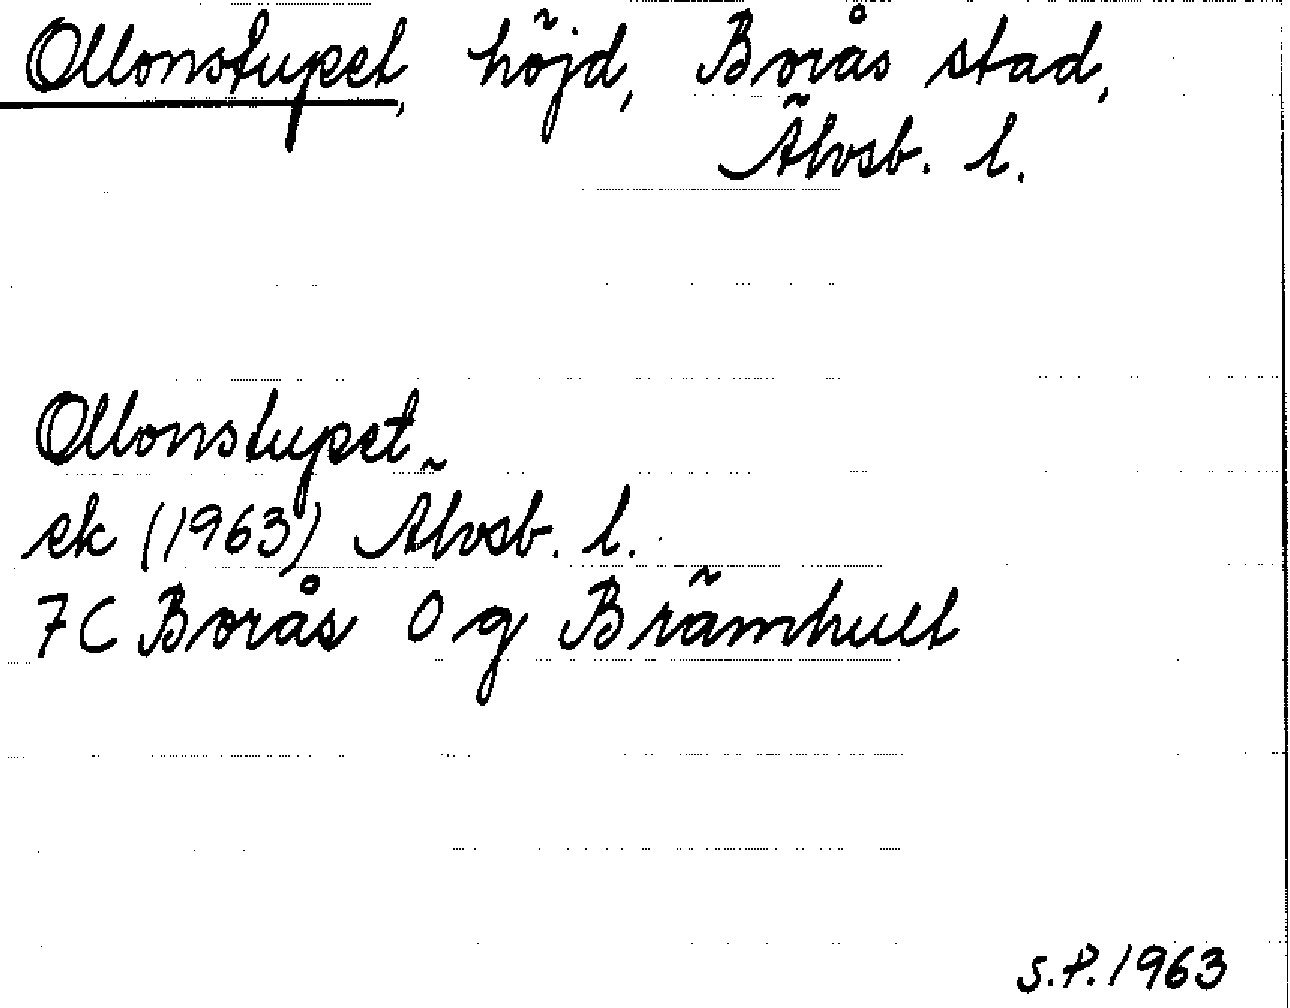 Ollonstupet, höjd, Borås stad,
Älvsb. l.
Ollonstupet
ek (1963) Älvsb. l.
7C Borås 0 g Brämhult
S.P. 1963